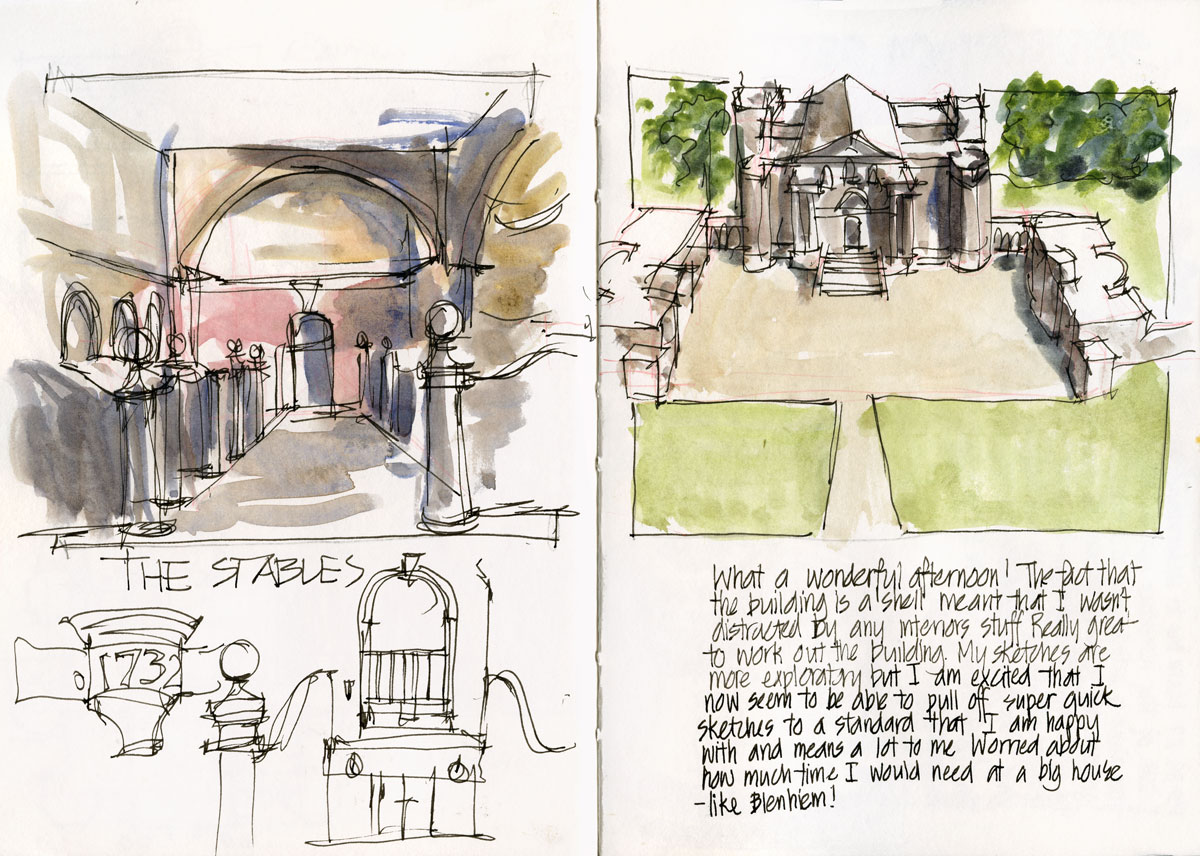 THE STABLES
1732
What a wonderful afternoon! The fact that
the building is a shell meant that I wasn't
distracted by any interiors stuff Really great
to work out the building. My sketches are
more exploratory but I am excited that I
now seem to be able to pull of super quick
sketches to a standard that I am happy
with and means a lot to me Worried about
how much time I would need at a big house
-like Blenhiem!